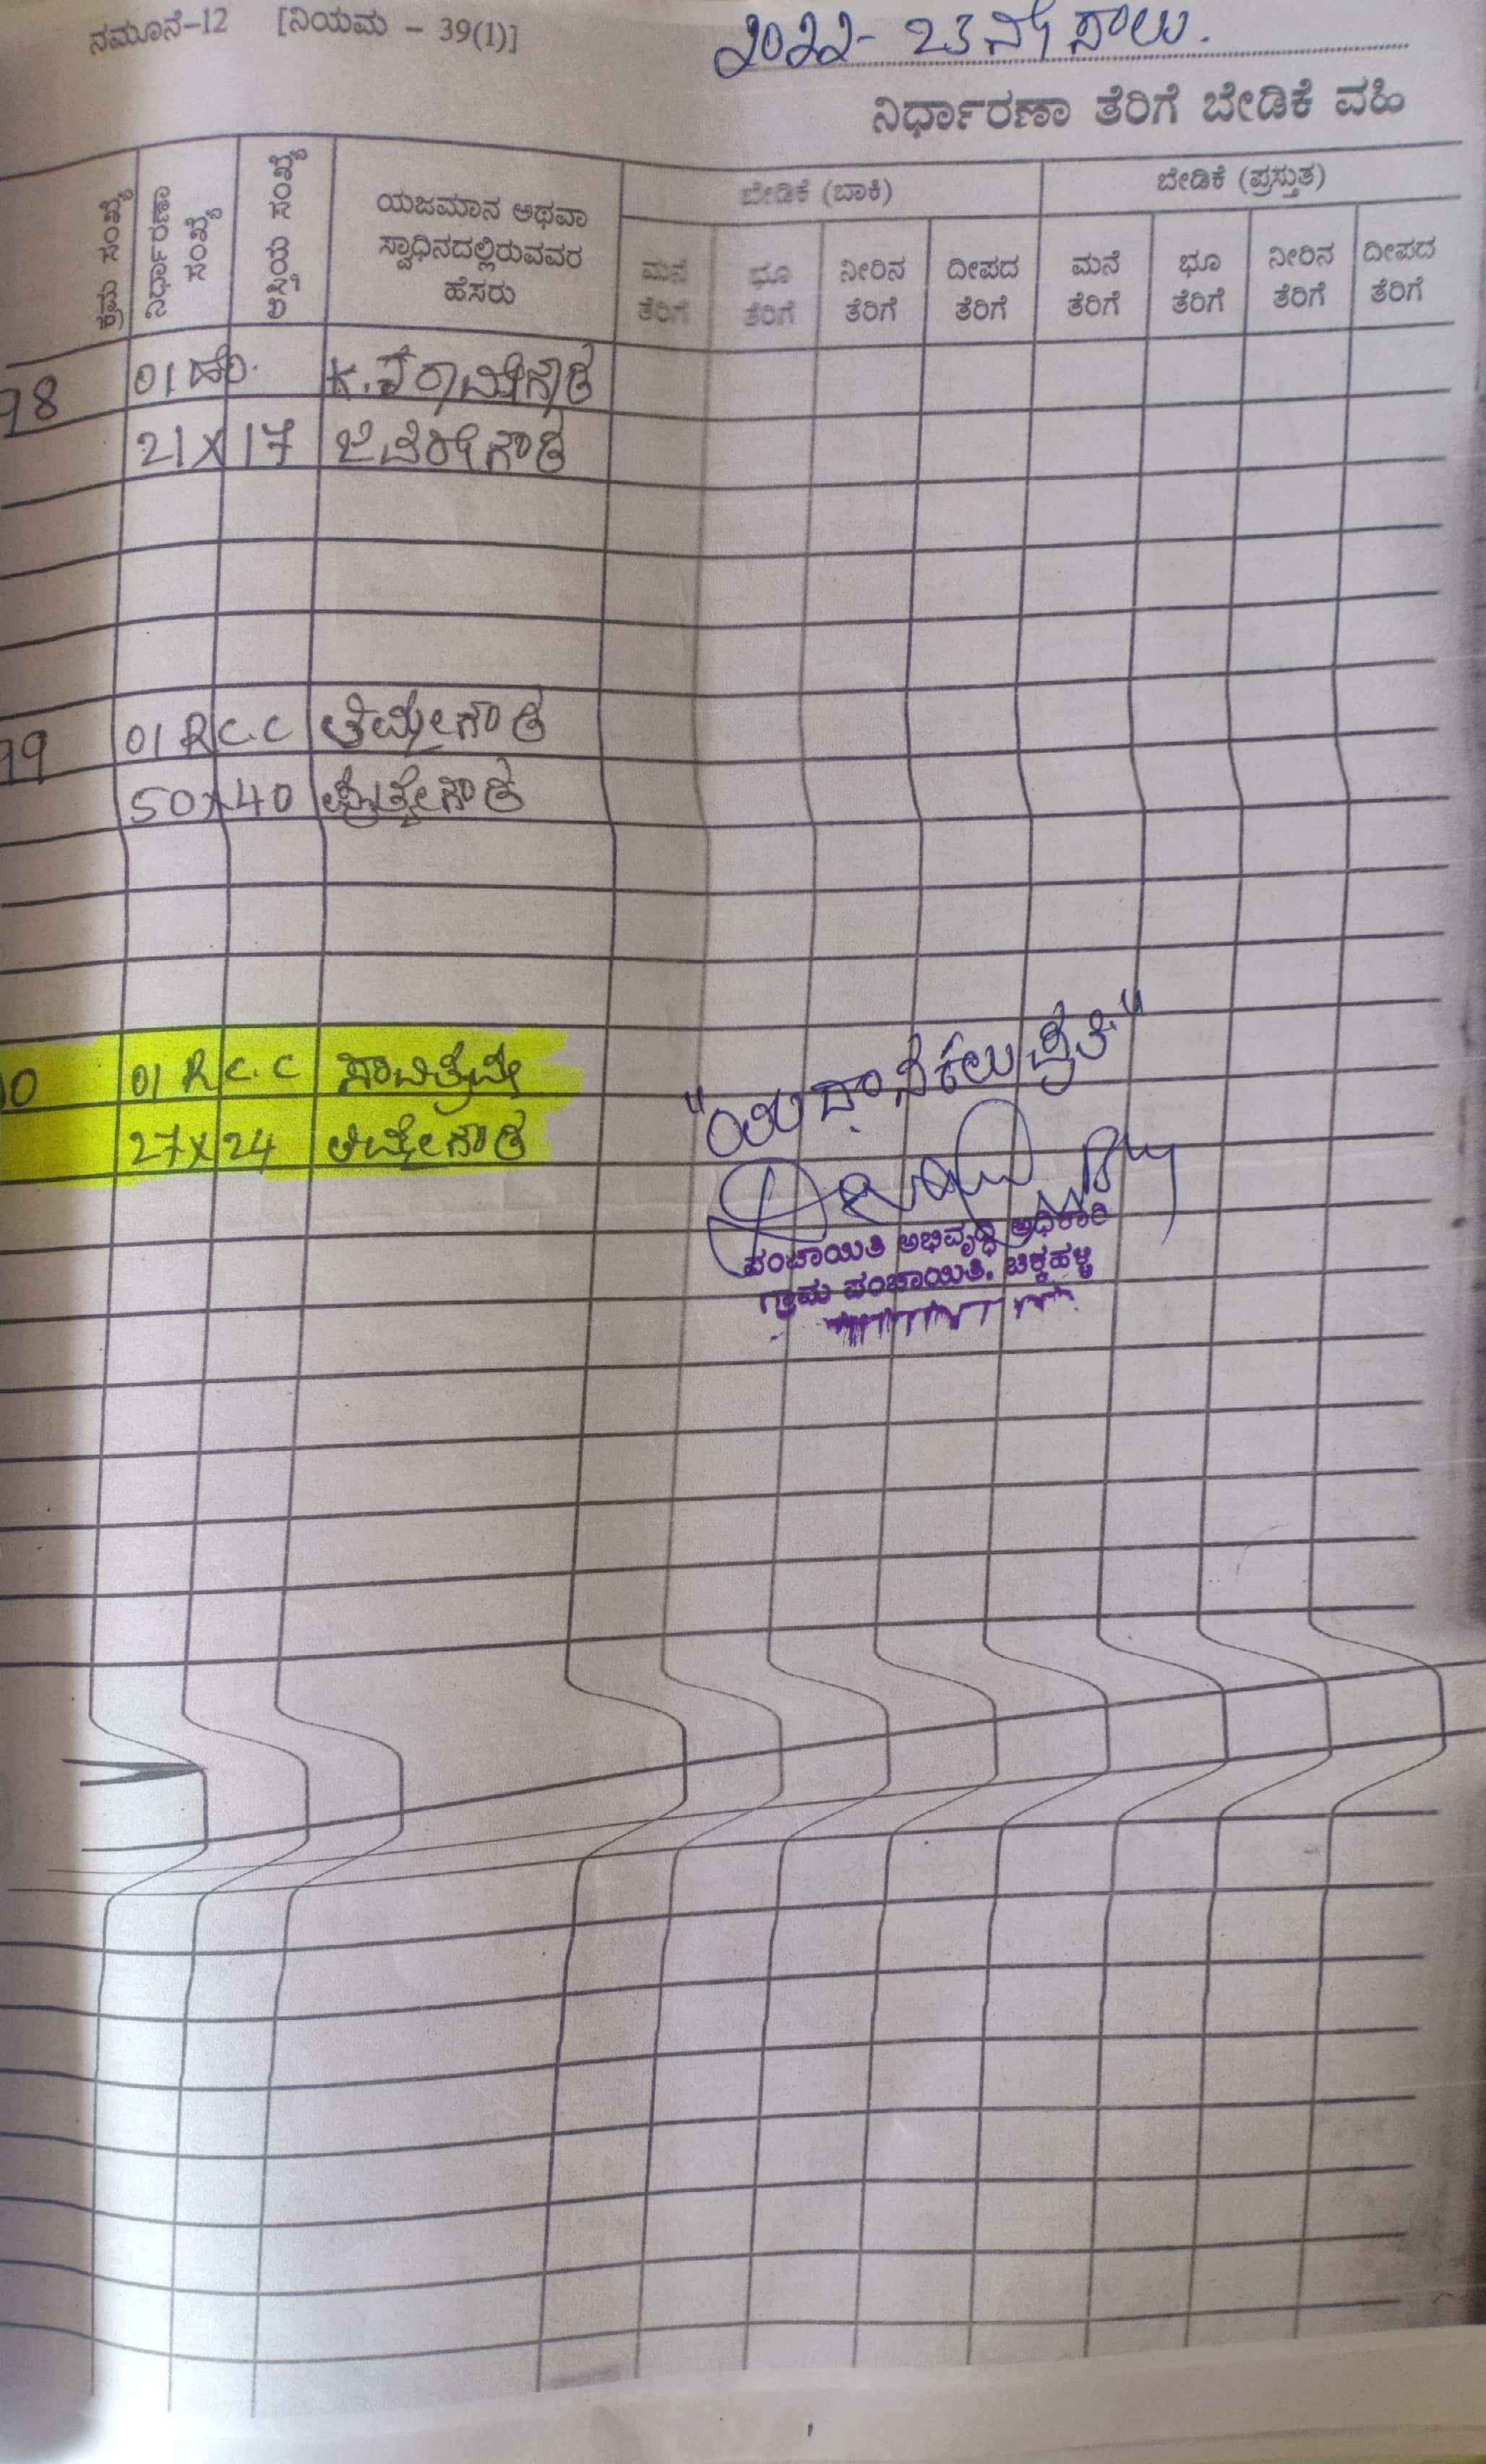 ನಮೂನೆ-12 [ನಿಯಮ - 39(1)]
2022-23ನೇ ಸಾಲು.
ನಿರ್ಧಾರಣಾ ತೆರಿಗೆ ಬೇಡಿಕೆ ವಹಿ
ಕ್ರಮ ಸಂಖ್ಯೆ
ನಿರ್ಧಾರಣಾ
ಸಂಖ್ಯೆ
ಆಸ್ತಿಯ ಸಂಖ್ಯೆ
ಯಜಮಾನ ಅಥವಾ
ಸ್ವಾಧಿನದಲ್ಲಿರುವವರ
ಹೆಸರು
ಬೇಡಿಕೆ (ಬಾಕಿ)
ಮನೆ
ತೆರಿಗೆ
ಭೂ
ತೆರಿಗೆ
ನೀರಿನ
ತೆರಿಗೆ
ದೀಪದ
ತೆರಿಗೆ
ಬೇಡಿಕೆ (ಪ್ರಸ್ತುತ)
ಮನೆ
ತೆರಿಗೆ
ಭೂ
ತೆರಿಗೆ
ನೀರಿನ
ತೆರಿಗೆ
ದೀಪದ
ತೆರಿಗೆ
98 01 ಹೆಂ.
21X17 ಜವರೇಗೌಡ
99 01 R.C.C ತಿಮ್ಮೇಗೌಡ
50X40
01 R.C.C
27X24 ತಿಮ್ಮೇಗೌಡ
ಪಂಚಾಯಿತಿ ಅಭಿವೃದ್ಧಿ ಅಧಿಕಾರಿ
ಗ್ರಾಮ ಪಂಚಾಯಿತಿ, ಚಿಕ್ಕಹಳ್ಳಿ